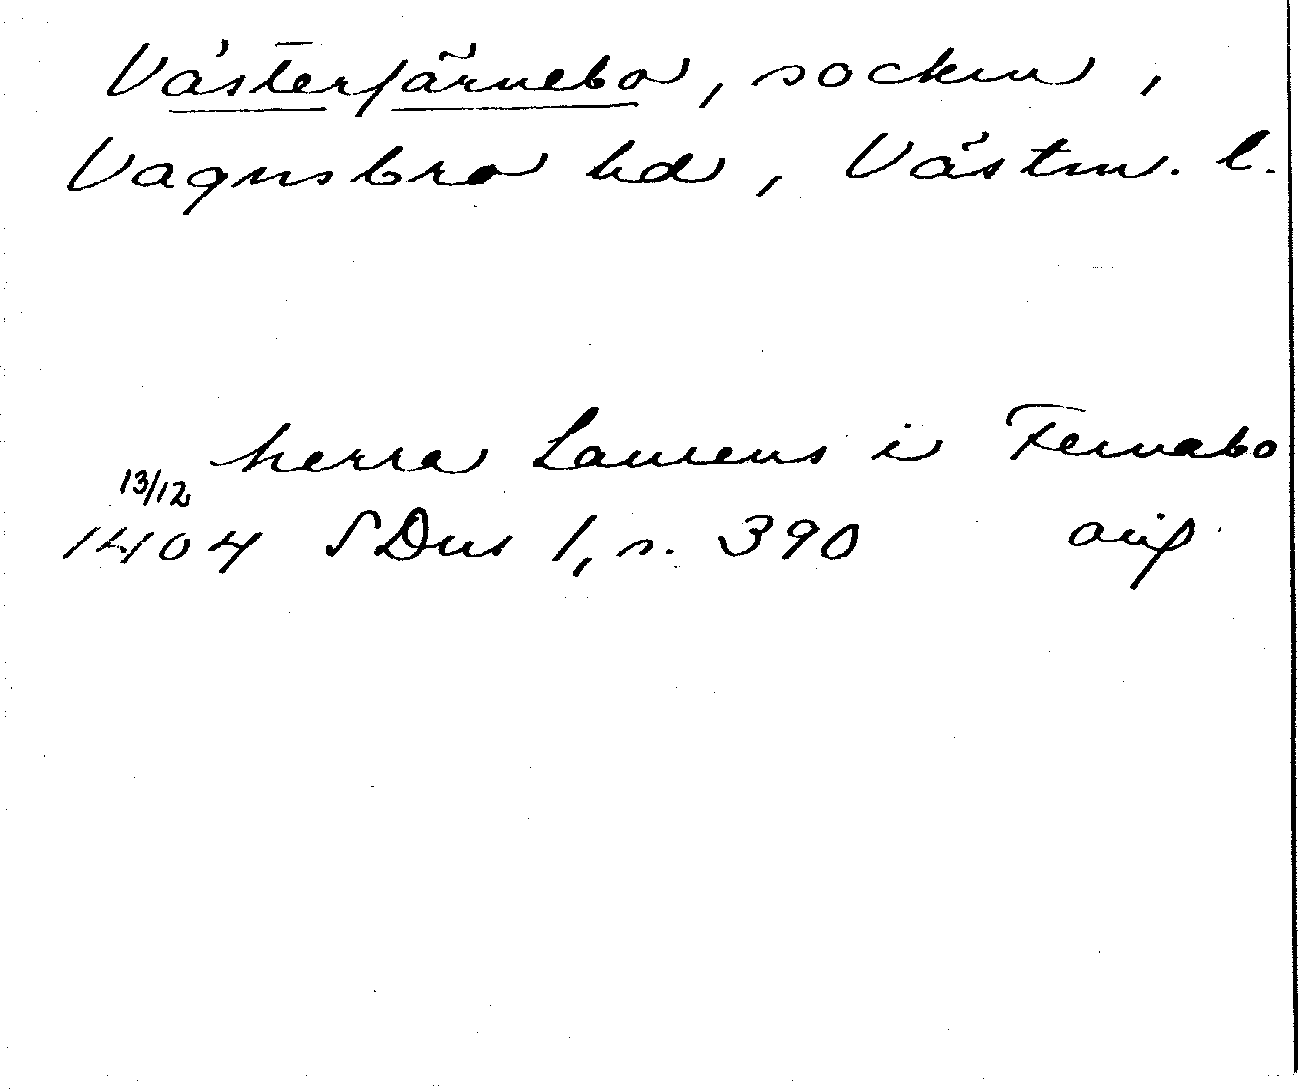 Västerfärnebo, socken,
Vagnsbro hd, Västm. l.
herra Laurens i Fernabo
13/12
1404 SDns 1, s. 390 avif